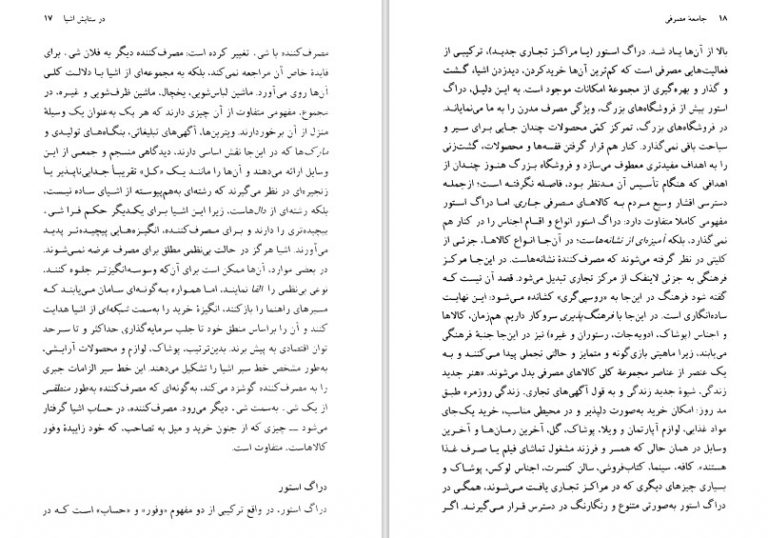 در ستایش اشیا ۱۷
مصرف‌کننده با شیء تغییر کرده است: مصرف‌کننده دیگر به فلان شیء برای
فایدهٔ خاص آن مراجعه نمی‌کند، بلکه به مجموعه‌ای از اشیا با دلالت کلی
آن‌ها روی می‌آورد. ماشین لباس‌شویی، یخچال، ماشین ظرف‌شویی و غیره، در
مجموع، مفهومی متفاوت از آن چیزی دارند که هر یک به‌عنوان یک وسیلهٔ
منزل از آن برخوردارند. ویترین‌ها، آگهی‌های تبلیغاتی، بنگاه‌های تولیدی و
مارک‌ها که در این‌جا نقش اساسی دارند، دیدگاهی منسجم و جمعی از این
وسایل ارائه می‌دهند و آن‌ها را مانند یک «کل» تقریباً جدایی‌ناپذیر یا
زنجیره‌ای در نظر می‌گیرند که رشته‌ای به‌هم‌پیوسته از اشیای ساده نیست،
بلکه رشته‌ای از دال‌هاست، زیرا این اشیا برای یکدیگر حکم فراشیء
پیچیده‌تری را دارند و برای مصرف‌کننده، انگیزه‌هایی پیچیده‌تر پدید
می‌آورند. اشیا هرگز در حالت بی‌نظمی مطلق برای مصرف عرضه نمی‌شوند.
در بعضی موارد، آن‌ها ممکن است برای آن‌که وسوسه‌انگیزتر جلوه کنند،
نوعی بی‌نظمی را القا نمایند، اما همواره به‌گونه‌ای سامان می‌یابند که
مسیرهای راهنما را بازکنند، انگیزهٔ خرید را به‌سمت شبکه‌ای از اشیا هدایت
کنند و آن را براساس منطق خود تا جلب سرمایه‌گذاری حداکثر و تا سرحد
توان اقتصادی به پیش برند. بدین‌ترتیب، پوشاک، لوازم و محصولات آرایشی،
به‌طور مشخص خط سیر اشیا را تشکیل می‌دهند. این خط سیر الزامات جبری
را به مصرف‌کننده گوشزد می‌کند، به‌گونه‌ای که مصرف‌کننده به‌طور منطقی
از یک شیء به‌سمت شیء دیگر می‌رود. مصرف‌کننده، در حساب اشیا گرفتار
می‌شود ــ چیزی که از جنون خرید و میل به تصاحب، که خود زاییدهٔ وفور
کالاهاست، متفاوت است.
دراگ استور
دراگ استور، در واقع ترکیبی از دو مفهوم «وفور» و «حساب» است که در
۱۸ جامعهٔ مصرفی
بالا از آن‌ها یاد شد. دراگ استور (یا مراکز تجاری جدید)، ترکیبی از
فعالیت‌هایی مصرفی است که کم‌ترین آن‌ها خریدکردن، دیدزدن اشیا، گشت
و گذار و بهره‌گیری از مجموعهٔ امکانات موجود است. به این دلیل، دراگ
استور بیش از فروشگاه‌های بزرگ، ویژگی مصرف مدرن را به ما می‌نمایاند.
در فروشگاه‌های بزرگ، تمرکز کمّی محصولات چندان جایی برای سیر و
سیاحت باقی نمی‌گذارد. کنار هم قرار گرفتن قفسه‌ها و محصولات، گشت‌زنی
را به اهداف مفیدتری معطوف می‌سازد و فروشگاه بزرگ هنوز چندان از
اهدافی که هنگام تأسیس آن مدنظر بود، فاصله نگرفته است؛ ازجمله
دسترسی اقشار وسیع مردم به کالاهای مصرفی جاری. اما دراگ استور
مفهومی کاملا متفاوت دارد: دراگ استور انواع و اقام اجناس را در کنار هم
نمی‌گذارد، بلکه آمیزه‌ای از نشانه‌هاست؛ در آن‌جا انواع کالاها، جزئی از
کلیتی در نظر گرفته می‌شوند که مصرف‌کنندهٔ نشانه‌هاست. در این‌جا مرکز
فرهنگی به جزئی لاینفک از مرکز تجاری تبدیل می‌شود. قصد آن نیست که
گفته شود فرهنگ در این‌جا به «روسپی‌گری» کشانده می‌شود: این نهایت
ساده‌انگاری است. در این‌جا با فرهنگ‌پذیری سروکار داریم. هم‌زمان، کالاها
و اجناس (پوشاک، ادویه‌جات، رستوران و غیره) نیز در این‌جا جنبهٔ فرهنگی
می‌یابند، زیرا ماهیتی بازی‌گونه و متمایز و حالتی تجملی پیدا می‌کنند و به
یک عنصر از عناصر مجموعهٔ کلی کالاهای مصرفی بدل می‌شوند. «هنر جدید
زندگی، شیوهٔ جدید زندگی و به قول آگهی‌های تجاری، زندگی روزمره طبق
مد روز: امکان خرید به‌صورت دلپذیر و در محیطی مناسب، خرید یک‌جای
مواد غذایی، لوازم آپارتمان و ویلا، پوشاک، گل، آخرین رمان‌ها و آخرین
وسایل در همان حالی که همسر و فرزند مشغول تماشای فیلم یا صرف غذا
هستند»، کافه، سینما، کتاب‌فروشی، سالن کنسرت، اجناس لوکس، پوشاک و
بسیاری چیزهای دیگری که در مراکز تجاری یافت می‌شوند، همگی در
دراگ استور به‌صورتی متنوع و رنگارنگ در دسترس قرار می‌گیرند. اگر